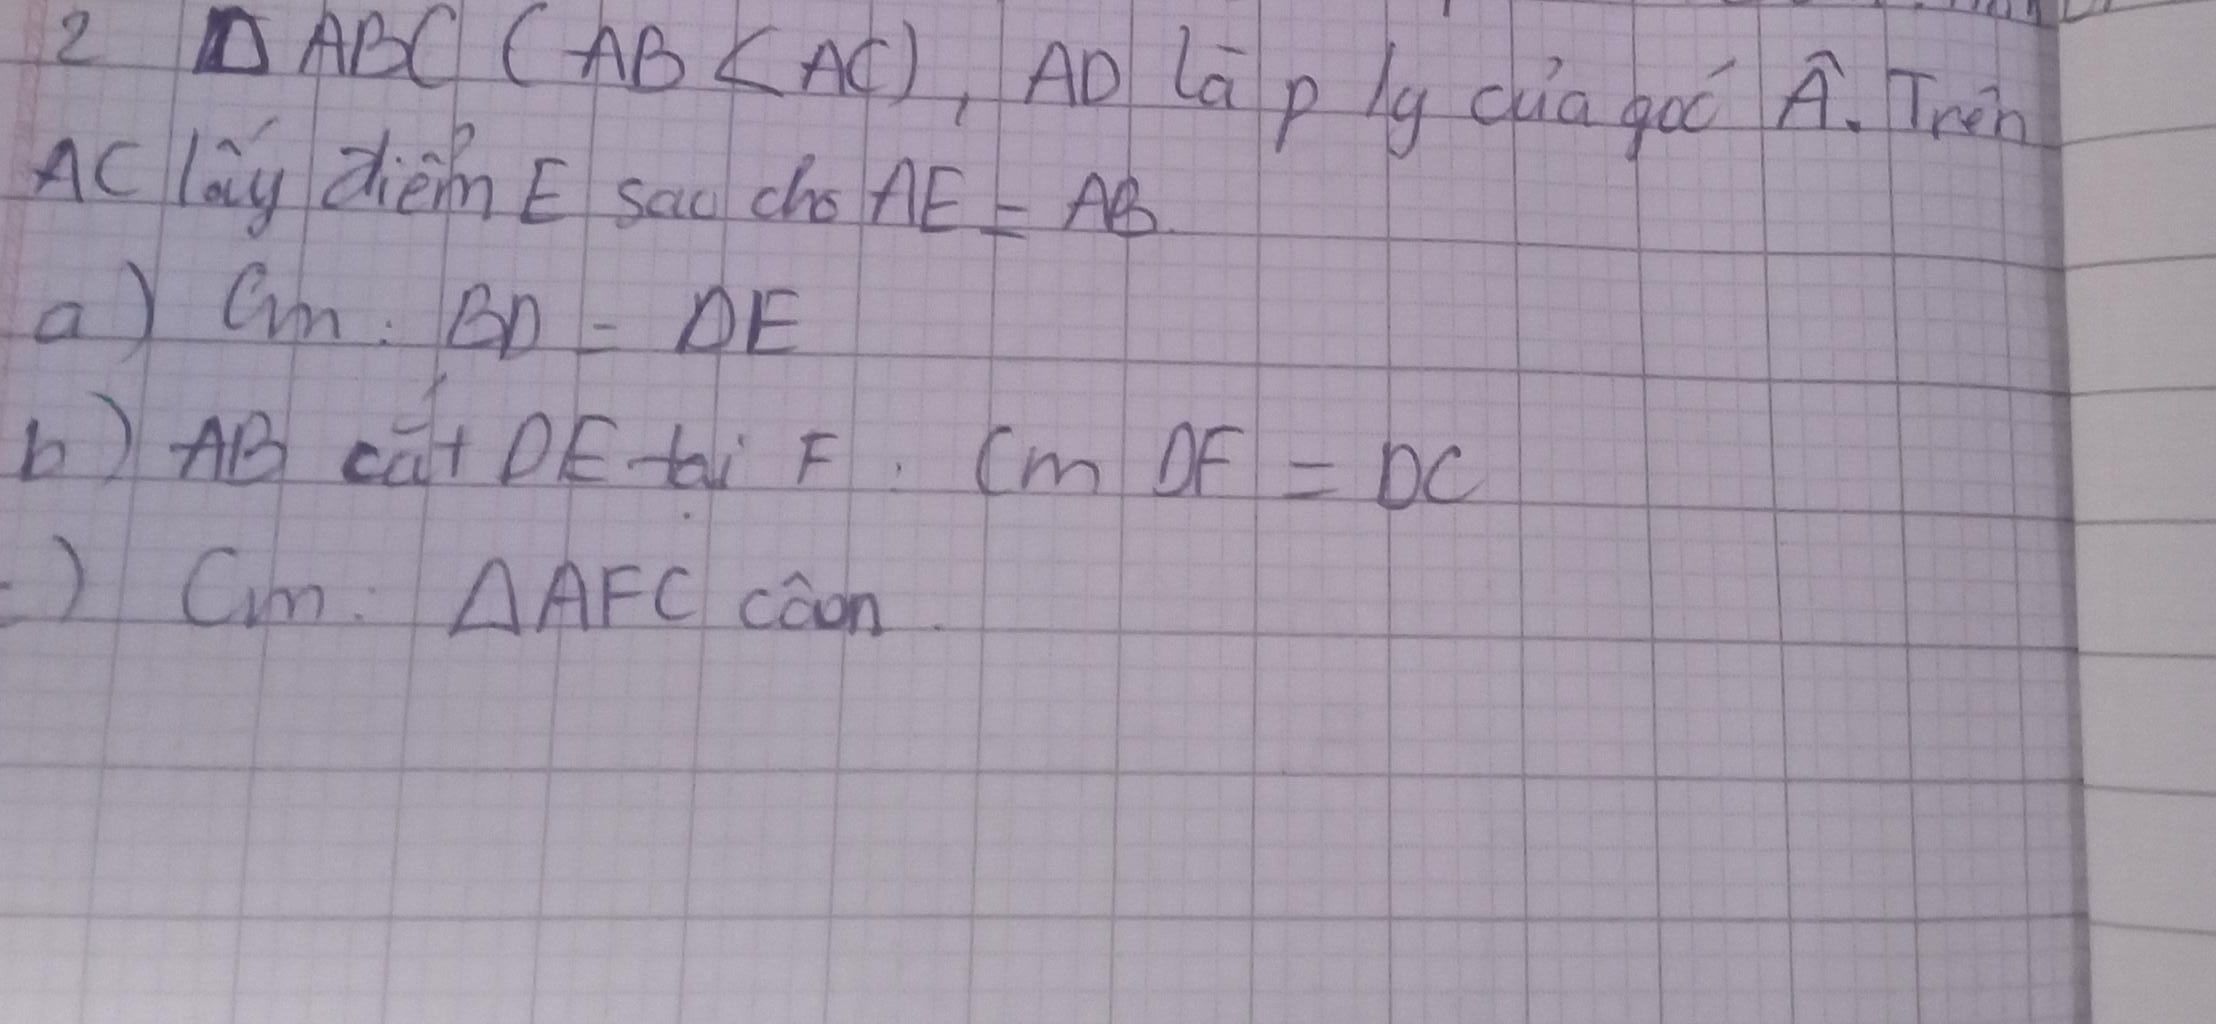 2 Δ ABC ( AB < AC ), AD là p/g của góc Â. Trên
AC lấy điểm E sao cho AE = AB
a) Cm: BD = DE
b) AB cắt DE tại F. Cm DF = DC
) Cm: ΔAFC cân.